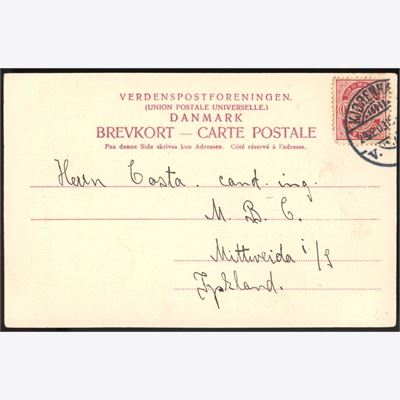 VERDENSPOSTFORENINGEN.
(UNION POSTALE UNIVERSELLE.)
DANMARK
BREVKORT — CARTE POSTALE
Paa denne Side skrives kun Adressen. Côté réservé à l'adresse.
KJØBENH
Herrn Costa. cand. ing.
M. B. C.
Mittweida i/S
Tyskland.